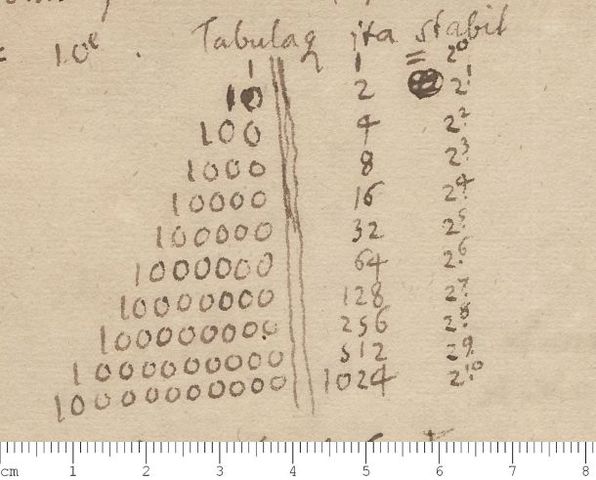 = 10^e . Tabulaq jta stabit
1 1 = 2^0
10 2 2^1
100 4 2^2
1000 8 2^3
10000 16 2^4
100000 32 2^5
1000000 64 2^6
10000000 128 2^7
100000000 256 2^8
1000000000 512 2^9
10000000000 1024 2^10
cm 1 2 3 4 5 6 7 8